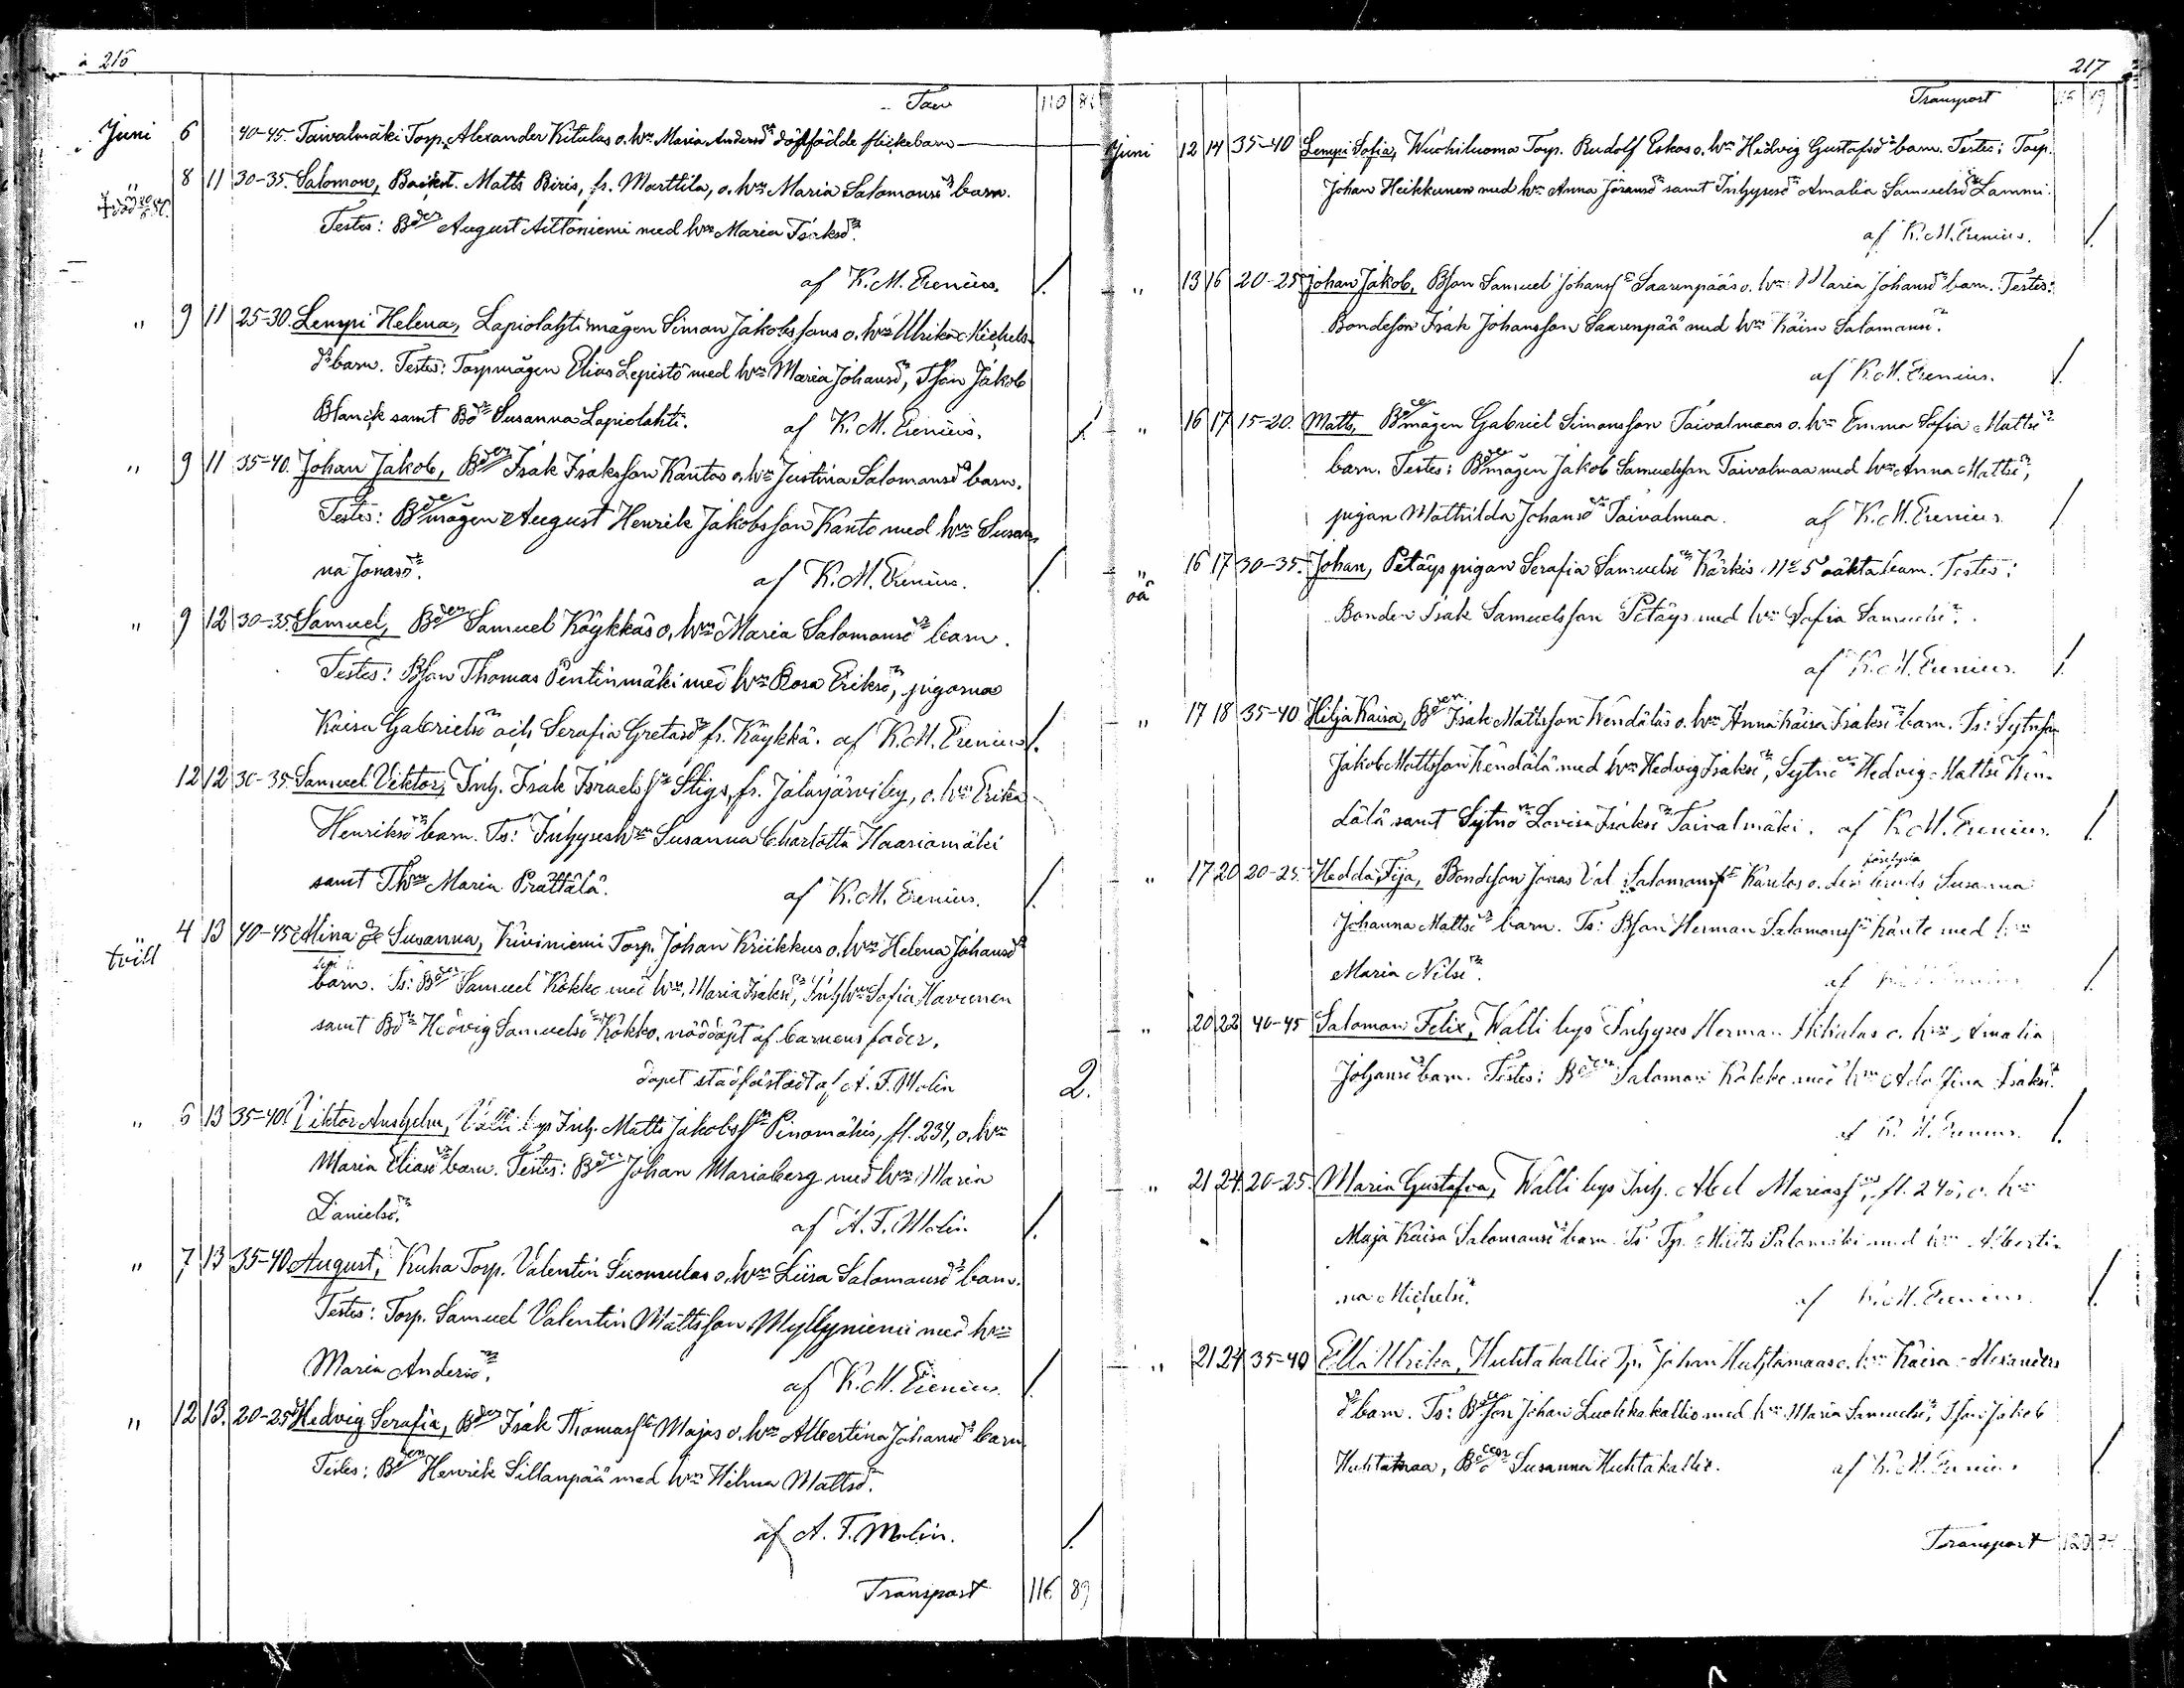 216
Juni 6 40-45. Taivalmäki Torp. Alexander Kitulas o. hn Maria Andersdr dödfödde flickebarn
" 8 11 30-35. Salomon, Backst. Matts Biris, fr. Marttila, o. hn Maria Salomonsdr barn.
Testes: Bden August Aittoniemi med hn Maria Isaksdr.
af K. M. Erenius. 1.
" 9 11 25-30. Lempi Helena, Lapiolahti mågen Simon Jakobssons o. hn Ulrika Michels-
dr barn. Testes: Torpmågen Elias Lepistö med hn Maria Johansdr, Tson Jakob
Blanck samt Bdr Susanna Lapiolahti. af K. M. Erenius. 1.
" 9 11 35-40. Johan Jakob, Bden Isak Isaksson Kantos o. hn Justina Salomonsdr barn.
Testes: Bdemågen August Henrik Jakobsson Kanto med hn Susan-
na Jonasdr. af K. M. Erenius. 1.
" 9 12 30-35. Samuel, Bden Samuel Köykkäs o. hn Maria Salomonsdr barn.
Testes: Bson Thomas Pentinmäki med hn Rosa Eriksdr, pigorna
Kaisa Gabrielsdr och Serafia Gretasdr fr. Köykkä. af K. M. Erenius. 1.
12 12 30-35. Samuel Viktor, Inh. Isak Israelssn Stigs, fr. Jalasjärvi by, o. hn Erika
Henriksdr barn. Ts: Inhyseshn Susanna Charlotta Haasiomäki
samt Thn Maria Prättälä. af K. M. Erenius. 1.
tvill 4 13 40-45. Mina & Susanna, Kiviniemi Torp. Johan Kriikkus o. hn Helena Johansdr
barn. Ts: Bden Samuel Kokko med hn Maria Isaksdr, Inh hn Sofia Havunen
samt Bdr Hedvig Samuelsdr Kokko, nöddöpt af barnens fader,
dopet stadfästadt af A. F. Molin 2.
" 6 13 35-40. Viktor Anshelm, Valli bys Inh. Matts Jakobssn Pinomäkis, fl. 234, o. hn
Maria Eliasdr barn. Testes: Bden Johan Mariaberg med hn Maria
Danielsdr. af A. F. Molin 1.
" 7 13 35-40. August, Kuha Torp. Valentin Suomulas o. hn Liisa Salomonsdr barn.
Testes: Torp. Samuel Valentin Mattsson Myllyniemi med hn
Maria Andersdr. af K. M. Erenius. 1.
" 12 13. 20-25. Hedvig Serafia, Bden Isak Thomassn Majas o. hn Albertina Johansdr barn
Testes: Bden Henrik Sillanpää med hn Hilma Mattsdr.
af A. F. Molin. 1.
Transport 116 89
217
Transport 116 89
Juni 12 14 35-40 Lempi Sofia, Torp. Rudolf Eskos o. hn Hedvig Gustafsdr barn. Testes: Torp.
Johan Heikkunen med hn Anna Joransdr samt Inhysesdr Amalia Samuelsdr Lammi.
af K. M. Erenius. 1.
" 13 16 20-25 Johan Jakob, Bson Samuel Johanssn Saarenpääs o. hn Maria Johansdr barn. Testes:
Bondeson Isak Johansson Saarenpää med hn Kaisa Salomonsdr.
af K. M. Erenius. 1.
" 16 17 15-20. Matts, Bdemågen Gabriel Simonsson Taivalmaas o. hn Emma Sofia Mattsdr
barn. Testes: Bdemågen Jakob Samuelsson Taivalmaa med hn Anna Mattsdr,
pigan Mathilda Johansdr Taivalmaa. af K. M. Erenius 1
" 16 17 30-35. Johan, Petäys pigan Serafia Samuelsdr Kärkis oäkta barn. Testes:
oä
Bonden Isak Samuelsson Petäys med hn Sofia Samuelsdr.
af K. M. Erenius. 1.
" 17 18 35-40 Hilja Kaisa, Bden Isak Mattsson Kendäläs o. hn Anna Kaisa Isaksdr barn. Ts: Sytnsn
Jakob Mattsson Kendälä med hn Hedvig Isaksdr, Sytndr Hedvig Mattsdr Ken-
dälä samt Sytndr Lovisa Isaksdr Taivalmäki. af K. M. Erenius. 1.
" 17 20 20-25. Hedda Fija, Bondeson Jonas Val. Salomonssn Kantos o. dess Susanna
Johanna Mattsdr barn. Ts: Bson Herman Salomonssn Kanto med hn
Maria Nilsdr. af 1
" 20 22 40-45 Salomon Felix, Walli bys Inhyses Herman o. hn Amalia
Johansdr barn. Testes: Bden Salomon Kokko med hn Adolfina Isaksdr.
af K. M. Erenius. 1.
" 21 24 20-25. Maria Gustafva, Walli bys Inh. Abel Mariassn, fl. 240, o. hn
Maja Kaisa Salomonsdr barn. Ts: Tp. Matts Palomäki med hn Alberti-
na Michelsdr. af K. M. Erenius. 1.
" 21 24 35-40 Ella Ulrika, Huhtakallio Tp. Johan Huhtamaas o. hn Kaisa Alexanders
dr barn. Ts: Bdeson Johan Luohkakallio med hn Maria Samuelsdr, Tson Jakob
Huhtamaa, Bdedr Susanna Huhtakallio. af K. M. Erenius 1.
Transport 120